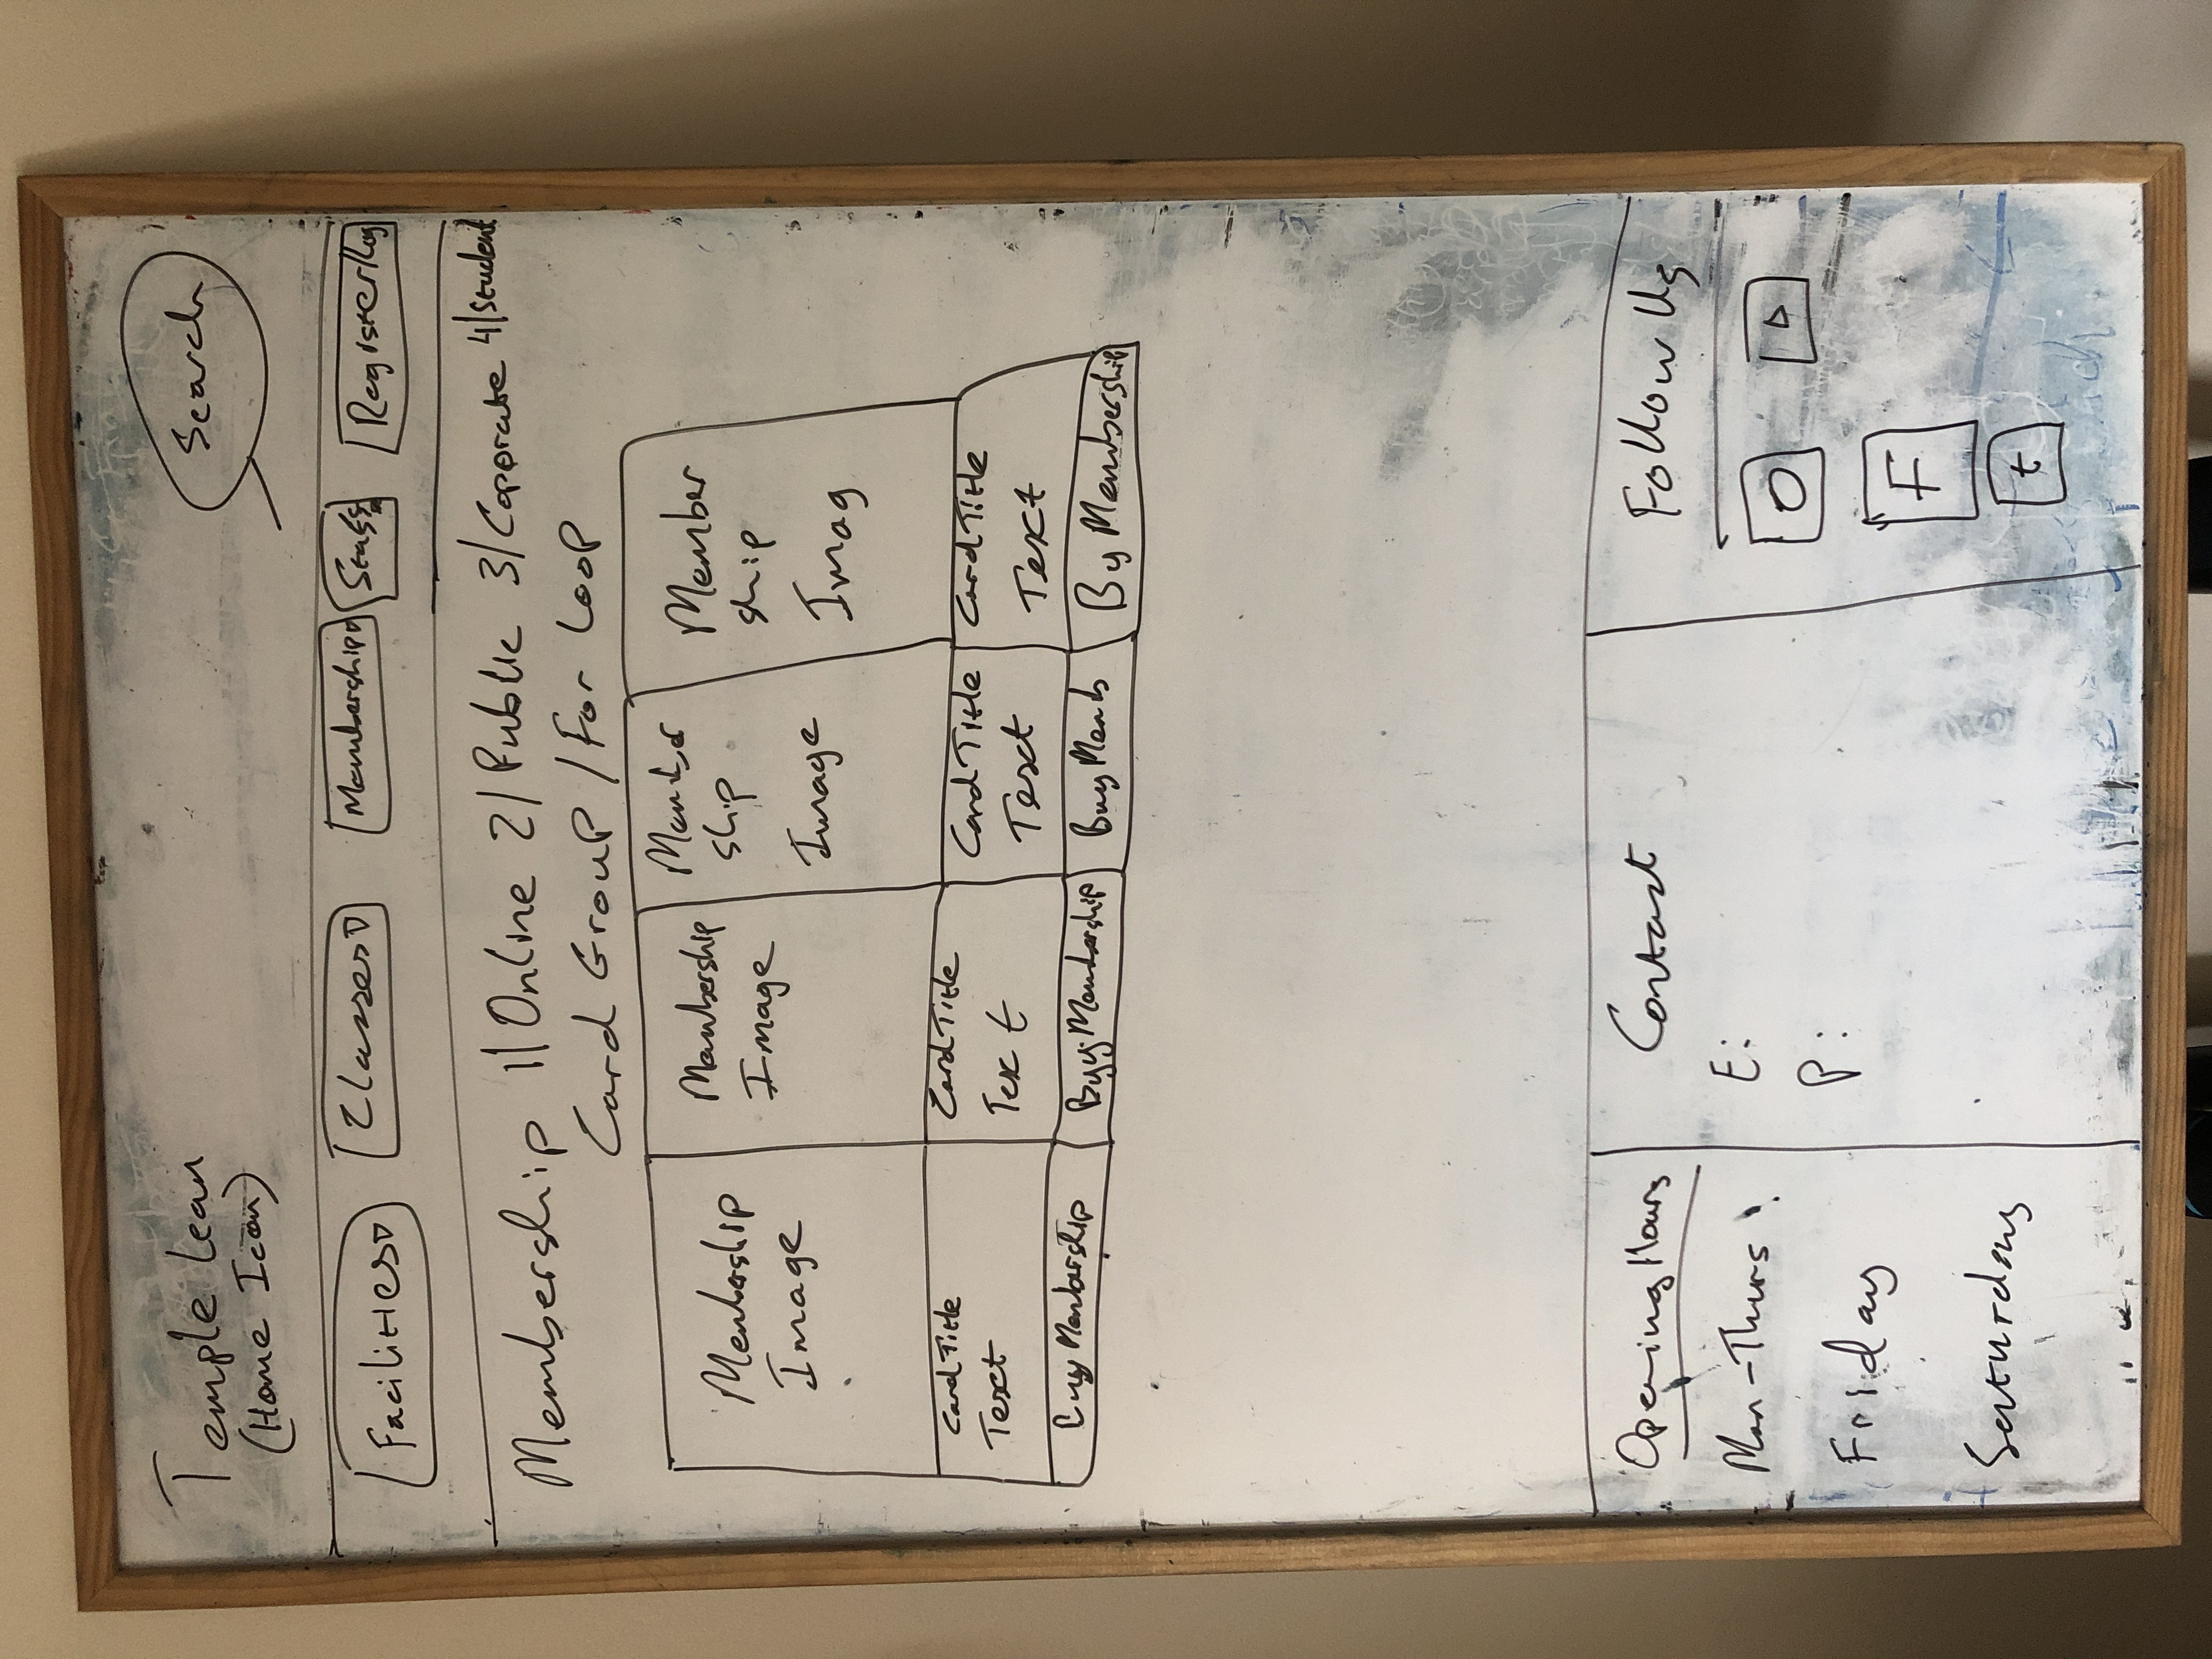 Temple lean
(Home Icon)
Search
Facilities
Classes
Membership
Staff
Register/log
Membership 1/Online 2/Public 3/Coporate 4/Student
Card Group / For Loop
Membership
Image
Membership
Image
Member
ship
Image
Member
ship
Imag
Card Title
Text
Card Title
Text
Card Title
Text
Card Title
Text
Buy Membership
Byy Membership
Buy Memb
By Membership
Opening Hours
Mon-Thurs:
Friday
Saturday
Contact
E:
P:
Follow Us
F
t